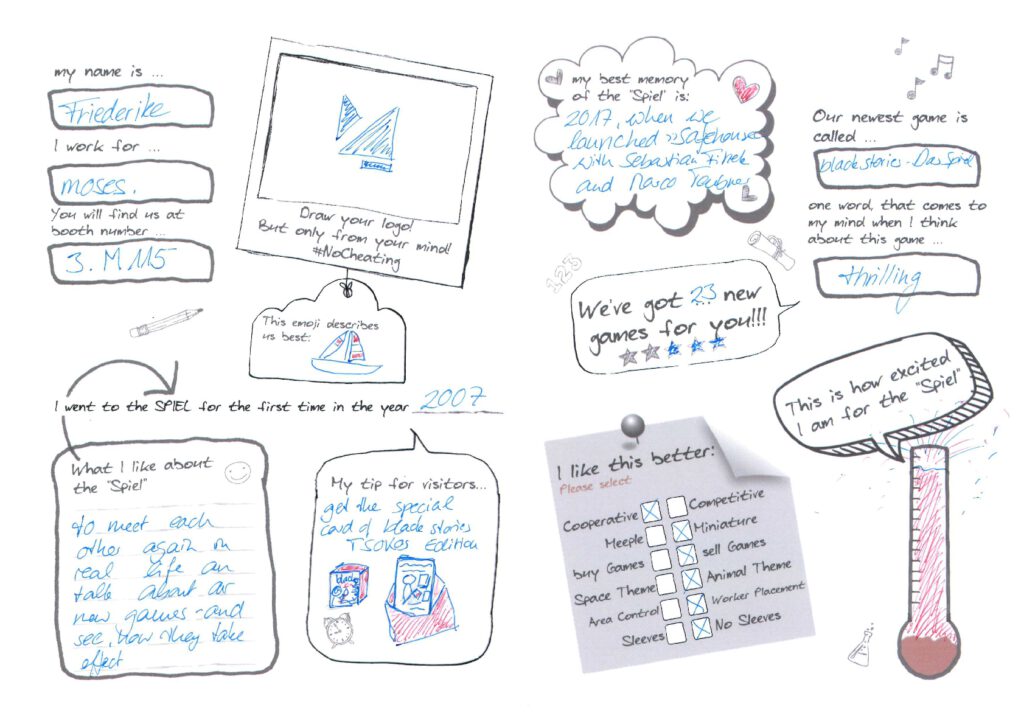 my name is ...
Friederike
I work for ...
moses.
You will find us at
booth number ...
3. M 115
Draw your logo!
But only from your mind!
#NoCheating
This emoji describes
us best:
I went to the SPIEL for the first time in the year 2007
What I like about
the "Spiel"
to meet each
other again in
real life an
talk about or
new games - and
see, how they take
effect
My tip for visitors...
get the special
card of black stories
TSOKOS Edition
black
my best memory
of the "Spiel" is:
2017, when we
launched »Safehouse
with Sebastian Fitzek
and Marco Teubner
Our newest game is
called ...
black stories - Das Spiel
one word, that comes to
my mind when I think
about this game ...
thrilling
123
We've got 23 new
games for you!!!
This is how excited
I am for the "Spiel"
I like this better:
Please select
Cooperative Competitive
Meeple Miniature
buy Games sell Games
Space Theme Animal Theme
Area Control Worker Placement
Sleeves No Sleeves